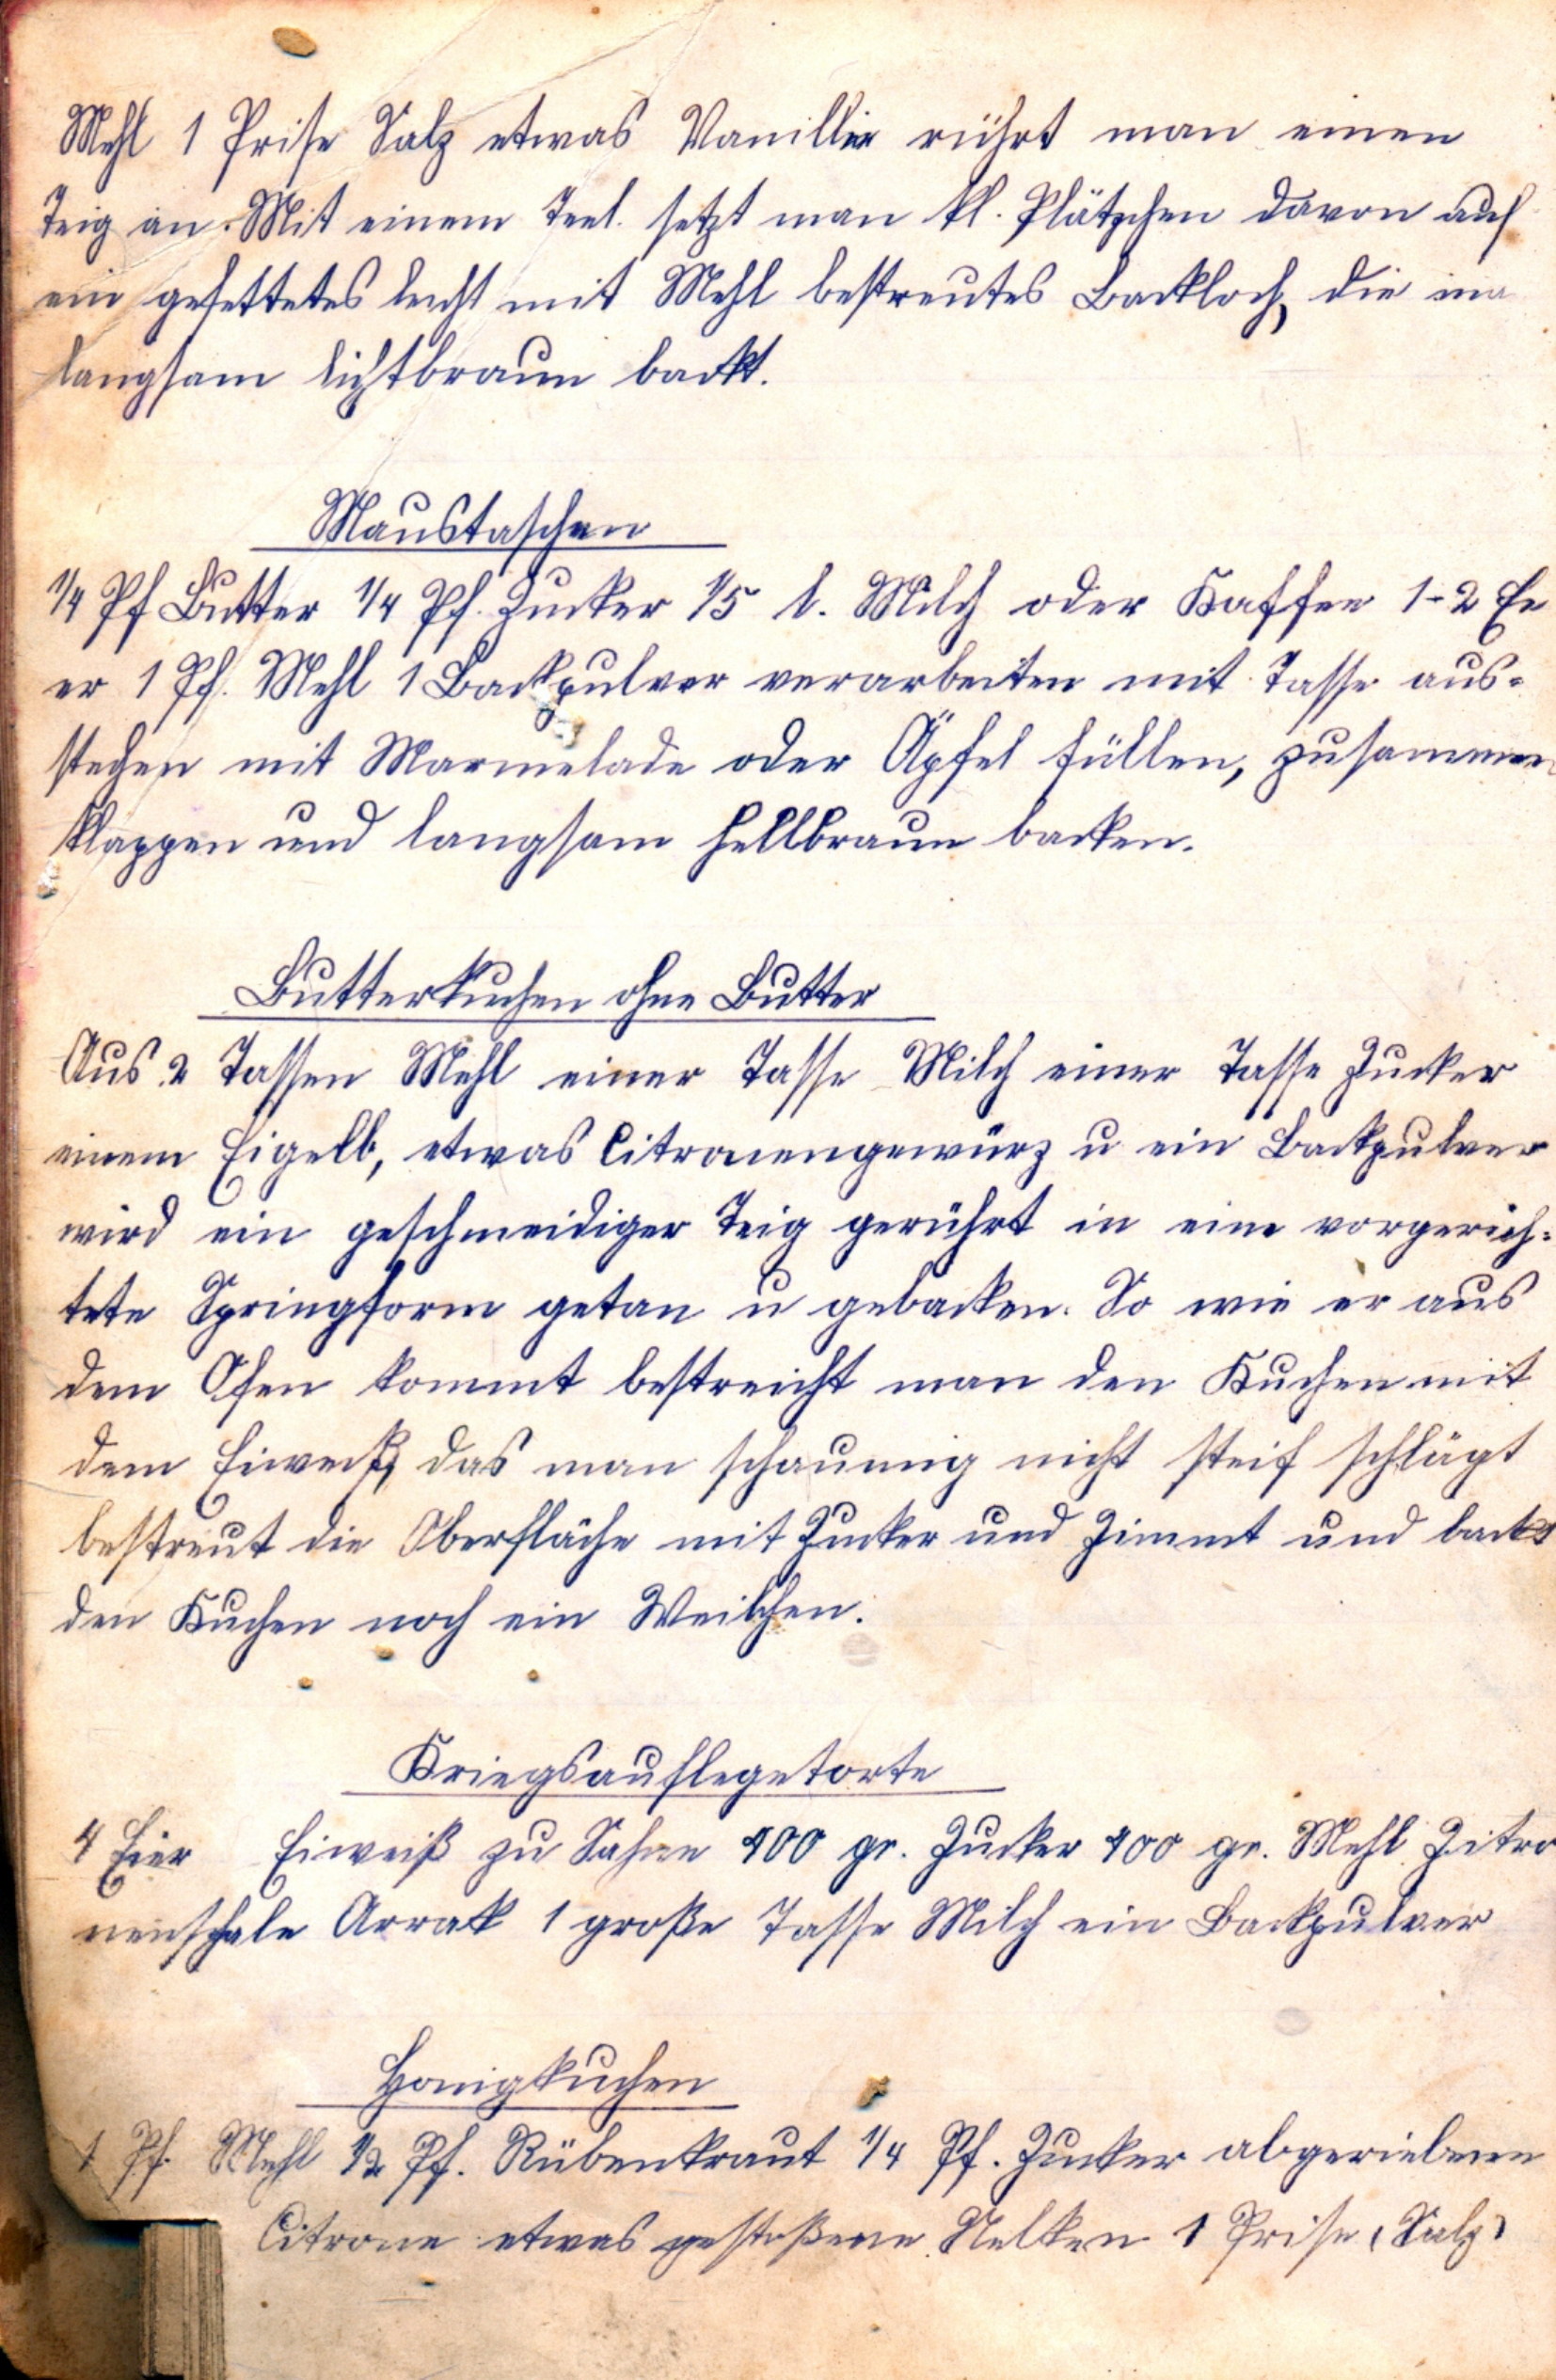 Mehl 1 Prise Salz etwas Vanillin rührt man einen
Teig an. Mit einem Teel. setzt man kl. Plätzchen davon auf
ein gefettetes leicht mit Mehl bestreutes Backloch, die ma
langsam lichtbraun backt.
Maustaschen
1/4 Pf Butter 1/4 Pf. Zucker 1/5 l. Milch oder Kaffee 1-2 Ei
er 1 Pf. Mehl 1 Backpulver verarbeiten mit Tasse aus-
stechen mit Marmelade oder Äpfel füllen, zusammen
klappen und langsam hellbraun backen.
Butterkuchen ohne Butter
Aus 2 Tassen Mehl einer Tasse Milch einer Tasse Zucker
einem Eigelb, etwas Citronengewürz u ein Backpulver
wird ein geschmeidiger Teig gerührt in eine vorgerich-
tete Springform getan u gebacken. So wie er aus
dem Ofen kommt bestreicht man den Kuchen mit
dem Eiweiß, das man schaumig nicht steif schlägt
bestreut die Oberfläche mit Zucker und Zimmt und backt
den Kuchen noch ein Weilchen.
Kriegsauflegetorte
4 Eier Eiweiß zu Sahne 400 gr. Zucker 400 gr. Mehl Zitro
nenschale Arrak 1 große Tasse Milch ein Backpulver
Honigkuchen
1 Pf. Mehl 1/2 Pf. Rübenkraut 1/4 Pf. Zucker abgeriebene
Citrone etwas gestoßene Nelken 1 Prise Salz